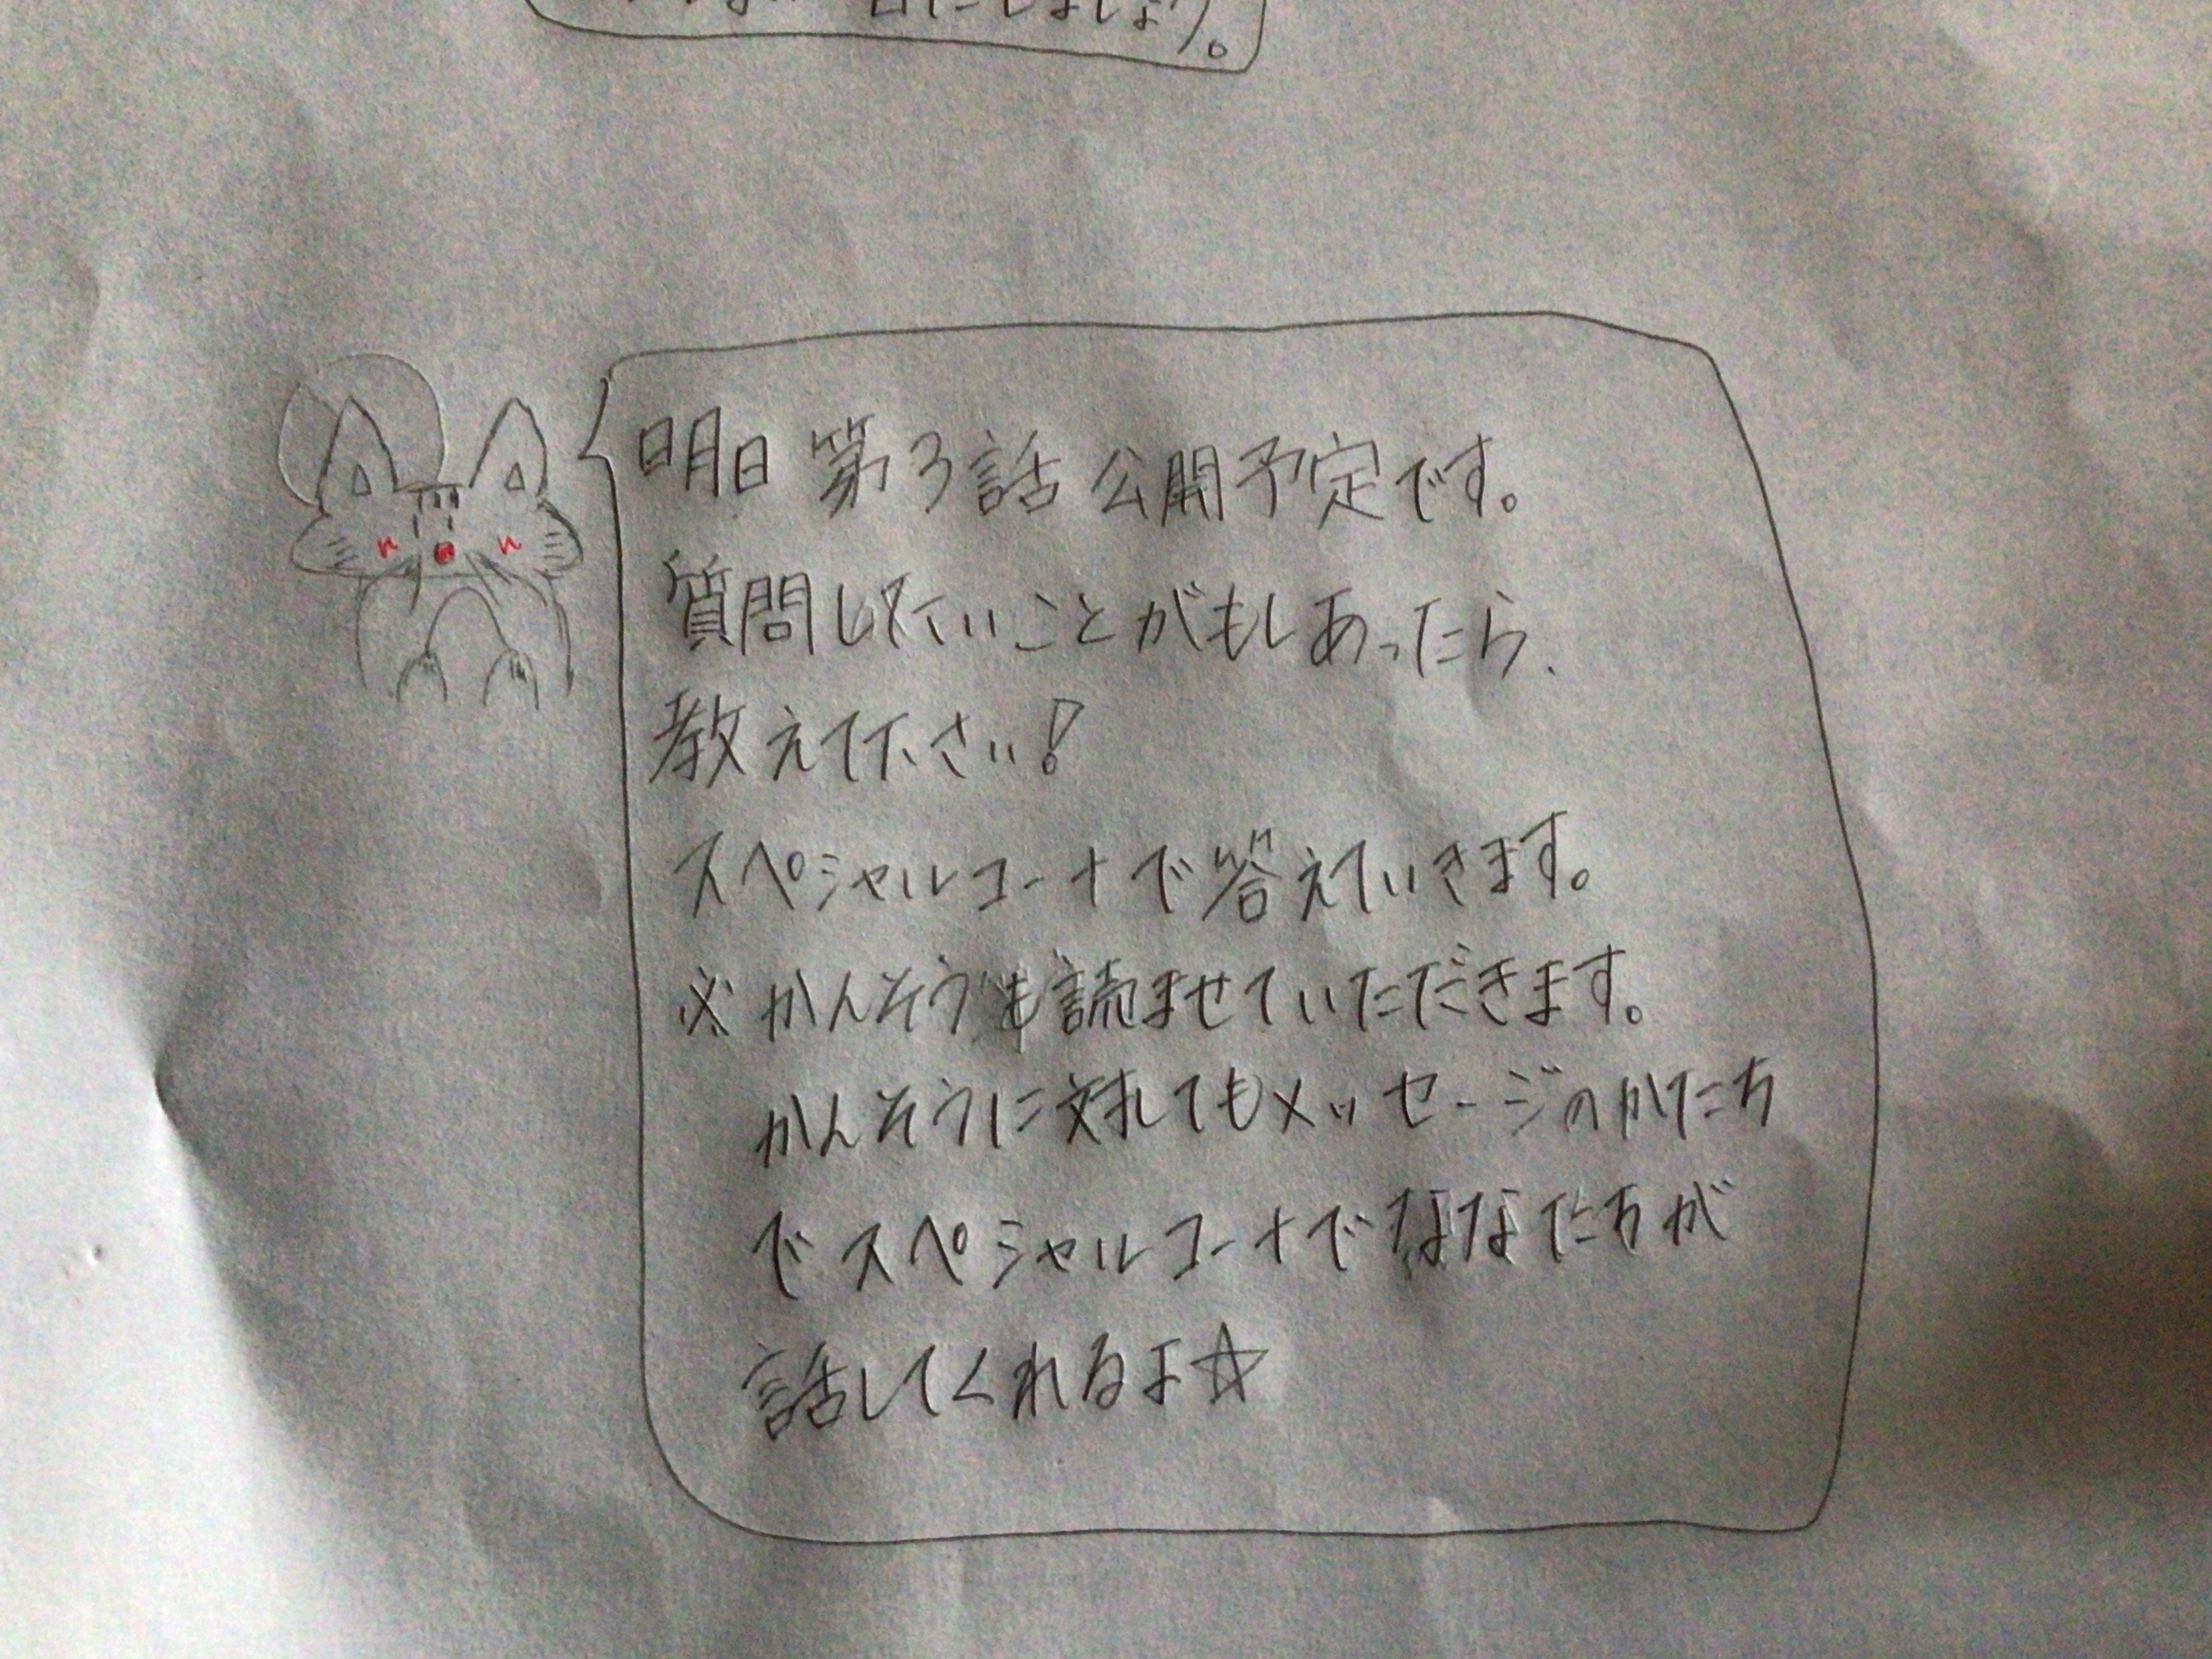 にしましょう。
明日 第3話 公開予定です。
質問したいことがもしあったら、
教えて下さい!
スペシャルコーナで答えていきます。
※かんそうも読ませていただきます。
かんそうに対してもメッセージのかたち
でスペシャルコーナでななたちが
話してくれるよ☆